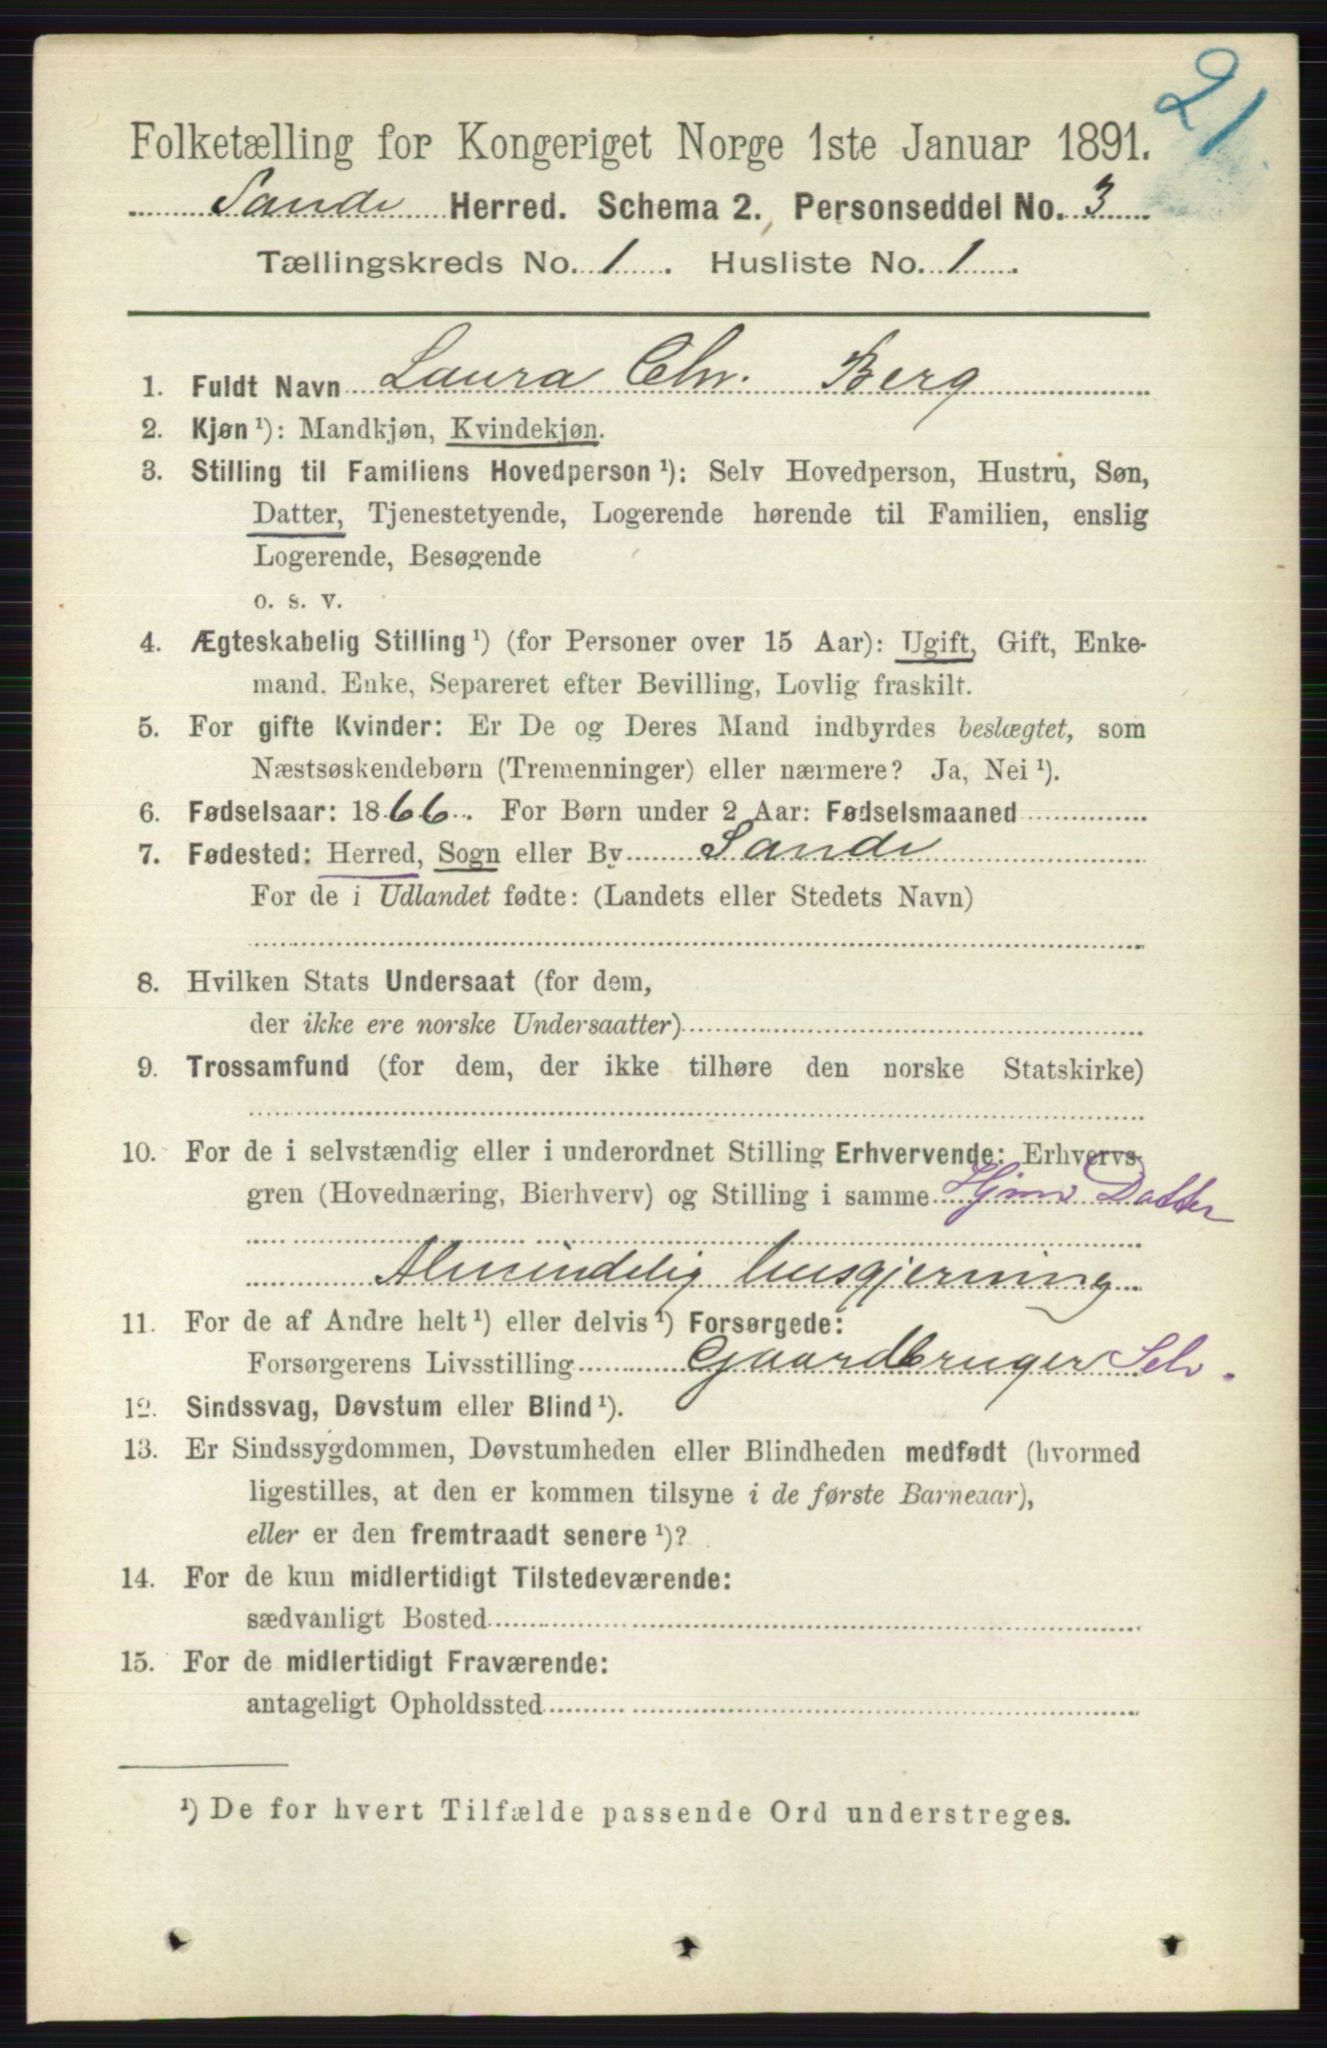 21
Folketælling for Kongeriget Norge 1ste Januar 1891.
Sande Herred. Schema 2. Personseddel No. 3
Tællingskreds No. 1. Husliste No. 1.
1. Fuldt Navn Laura Chr. Berg
2. Kjøn ¹): Mandkjøn, Kvindekjøn.
3. Stilling til Familiens Hovedperson ¹): Selv Hovedperson, Hustru, Søn,
Datter, Tjenestetyende, Logerende hørende til Familien, enslig
Logerende, Besøgende
o. s. v.
4. Ægteskabelig Stilling ¹) (for Personer over 15 Aar): Ugift, Gift, Enke-
mand, Enke, Separeret efter Bevilling, Lovlig fraskilt.
5. For gifte Kvinder: Er De og Deres Mand indbyrdes beslægtet, som
Næstsøskendebørn (Tremenninger) eller nærmere? Ja, Nei ¹).
6. Fødselsaar: 1866. For Børn under 2 Aar: Fødselsmaaned
7. Fødested: Herred, Sogn eller By Sande
For de i Udlandet fødte: (Landets eller Stedets Navn)
8. Hvilken Stats Undersaat (for dem,
der ikke ere norske Undersaatter)
9. Trossamfund (for dem, der ikke tilhøre den norske Statskirke)
10. For de i selvstændig eller i underordnet Stilling Erhvervende: Erhvervs-
gren (Hovednæring, Bierhverv) og Stilling i samme Hjmv Datter
Almindelig husgjerning
11. For de af Andre helt ¹) eller delvis ¹) Forsørgede:
Forsørgerens Livsstilling Gaardbruger Selv.
12. Sindssvag, Døvstum eller Blind ¹).
13. Er Sindssygdommen, Døvstumheden eller Blindheden medfødt (hvormed
ligestilles, at den er kommen tilsyne i de første Barneaar),
eller er den fremtraadt senere ¹)?
14. For de kun midlertidigt Tilstedeværende:
sædvanligt Bosted
15. For de midlertidigt Fraværende:
antageligt Opholdssted
¹) De for hvert Tilfælde passende Ord understreges.